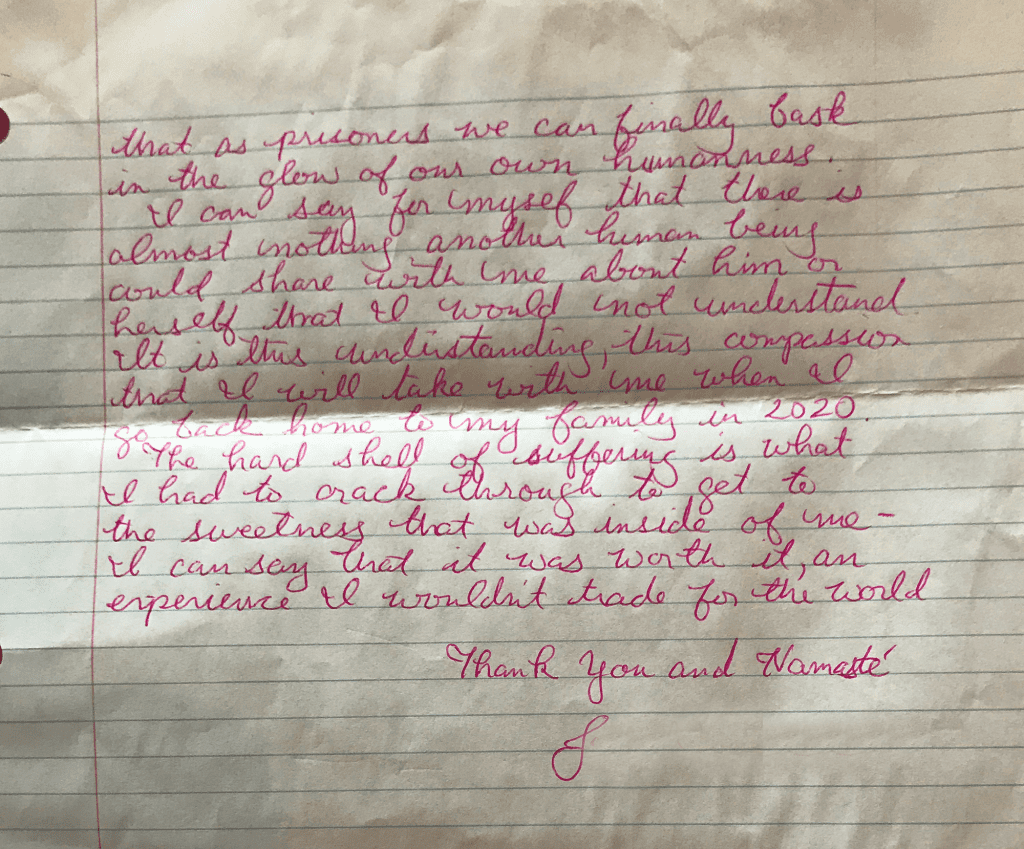 that as prisoners we can finally bask
in the glow of our own humanness.
I can say for myself that there is
almost nothing another human being
could share with me about him or
herself that I would not understand.
It is this understanding, this compassion
that I will take with me when I
go back home to my family in 2020.
The hard shell of suffering is what
I had to crack through to get to
the sweetness that was inside of me -
I can say that it was worth it, an
experience I wouldn't trade for the world
Thank You and Namasté
J